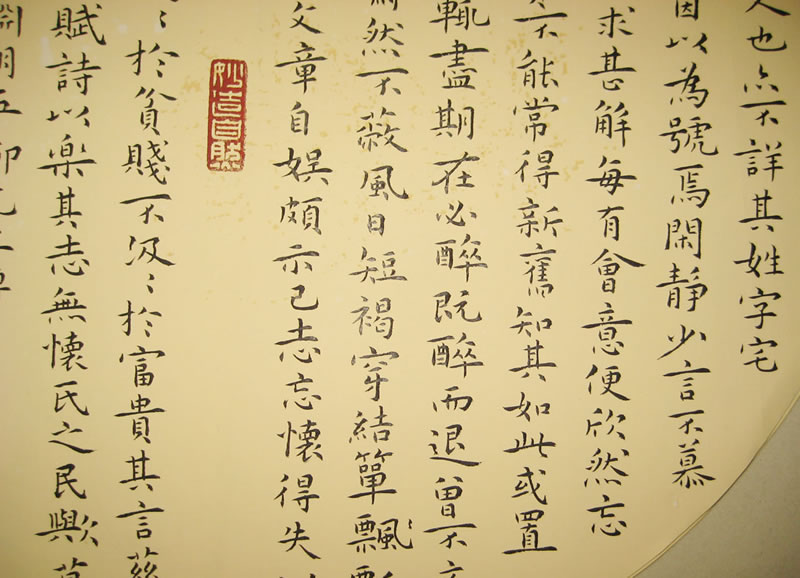 也亦不詳其姓字宅
因以為號焉閑靜少言不慕
求甚解每有會意便欣然忘
不能常得新舊知其如此或置
輒盡期在必醉既醉而退曾不
然不蔽風日短褐穿結簞飄
文章自娛頗示己志忘懷得失
妙造自然
〻於貧賤不汲〻於富貴其言茲
賦詩以樂其志無懷氏之民歟
明五